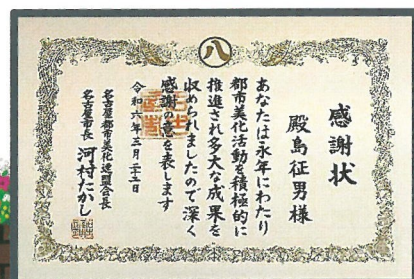 八
感謝状
殿島征男様
あなたは永年にわたり
都市美化活動を積極的に
推進され多大な成果を
収められましたので深く
感謝の意を表します
令和六年三月二十三日
名古屋都市美化連盟会長
名古屋市長 河村たかし